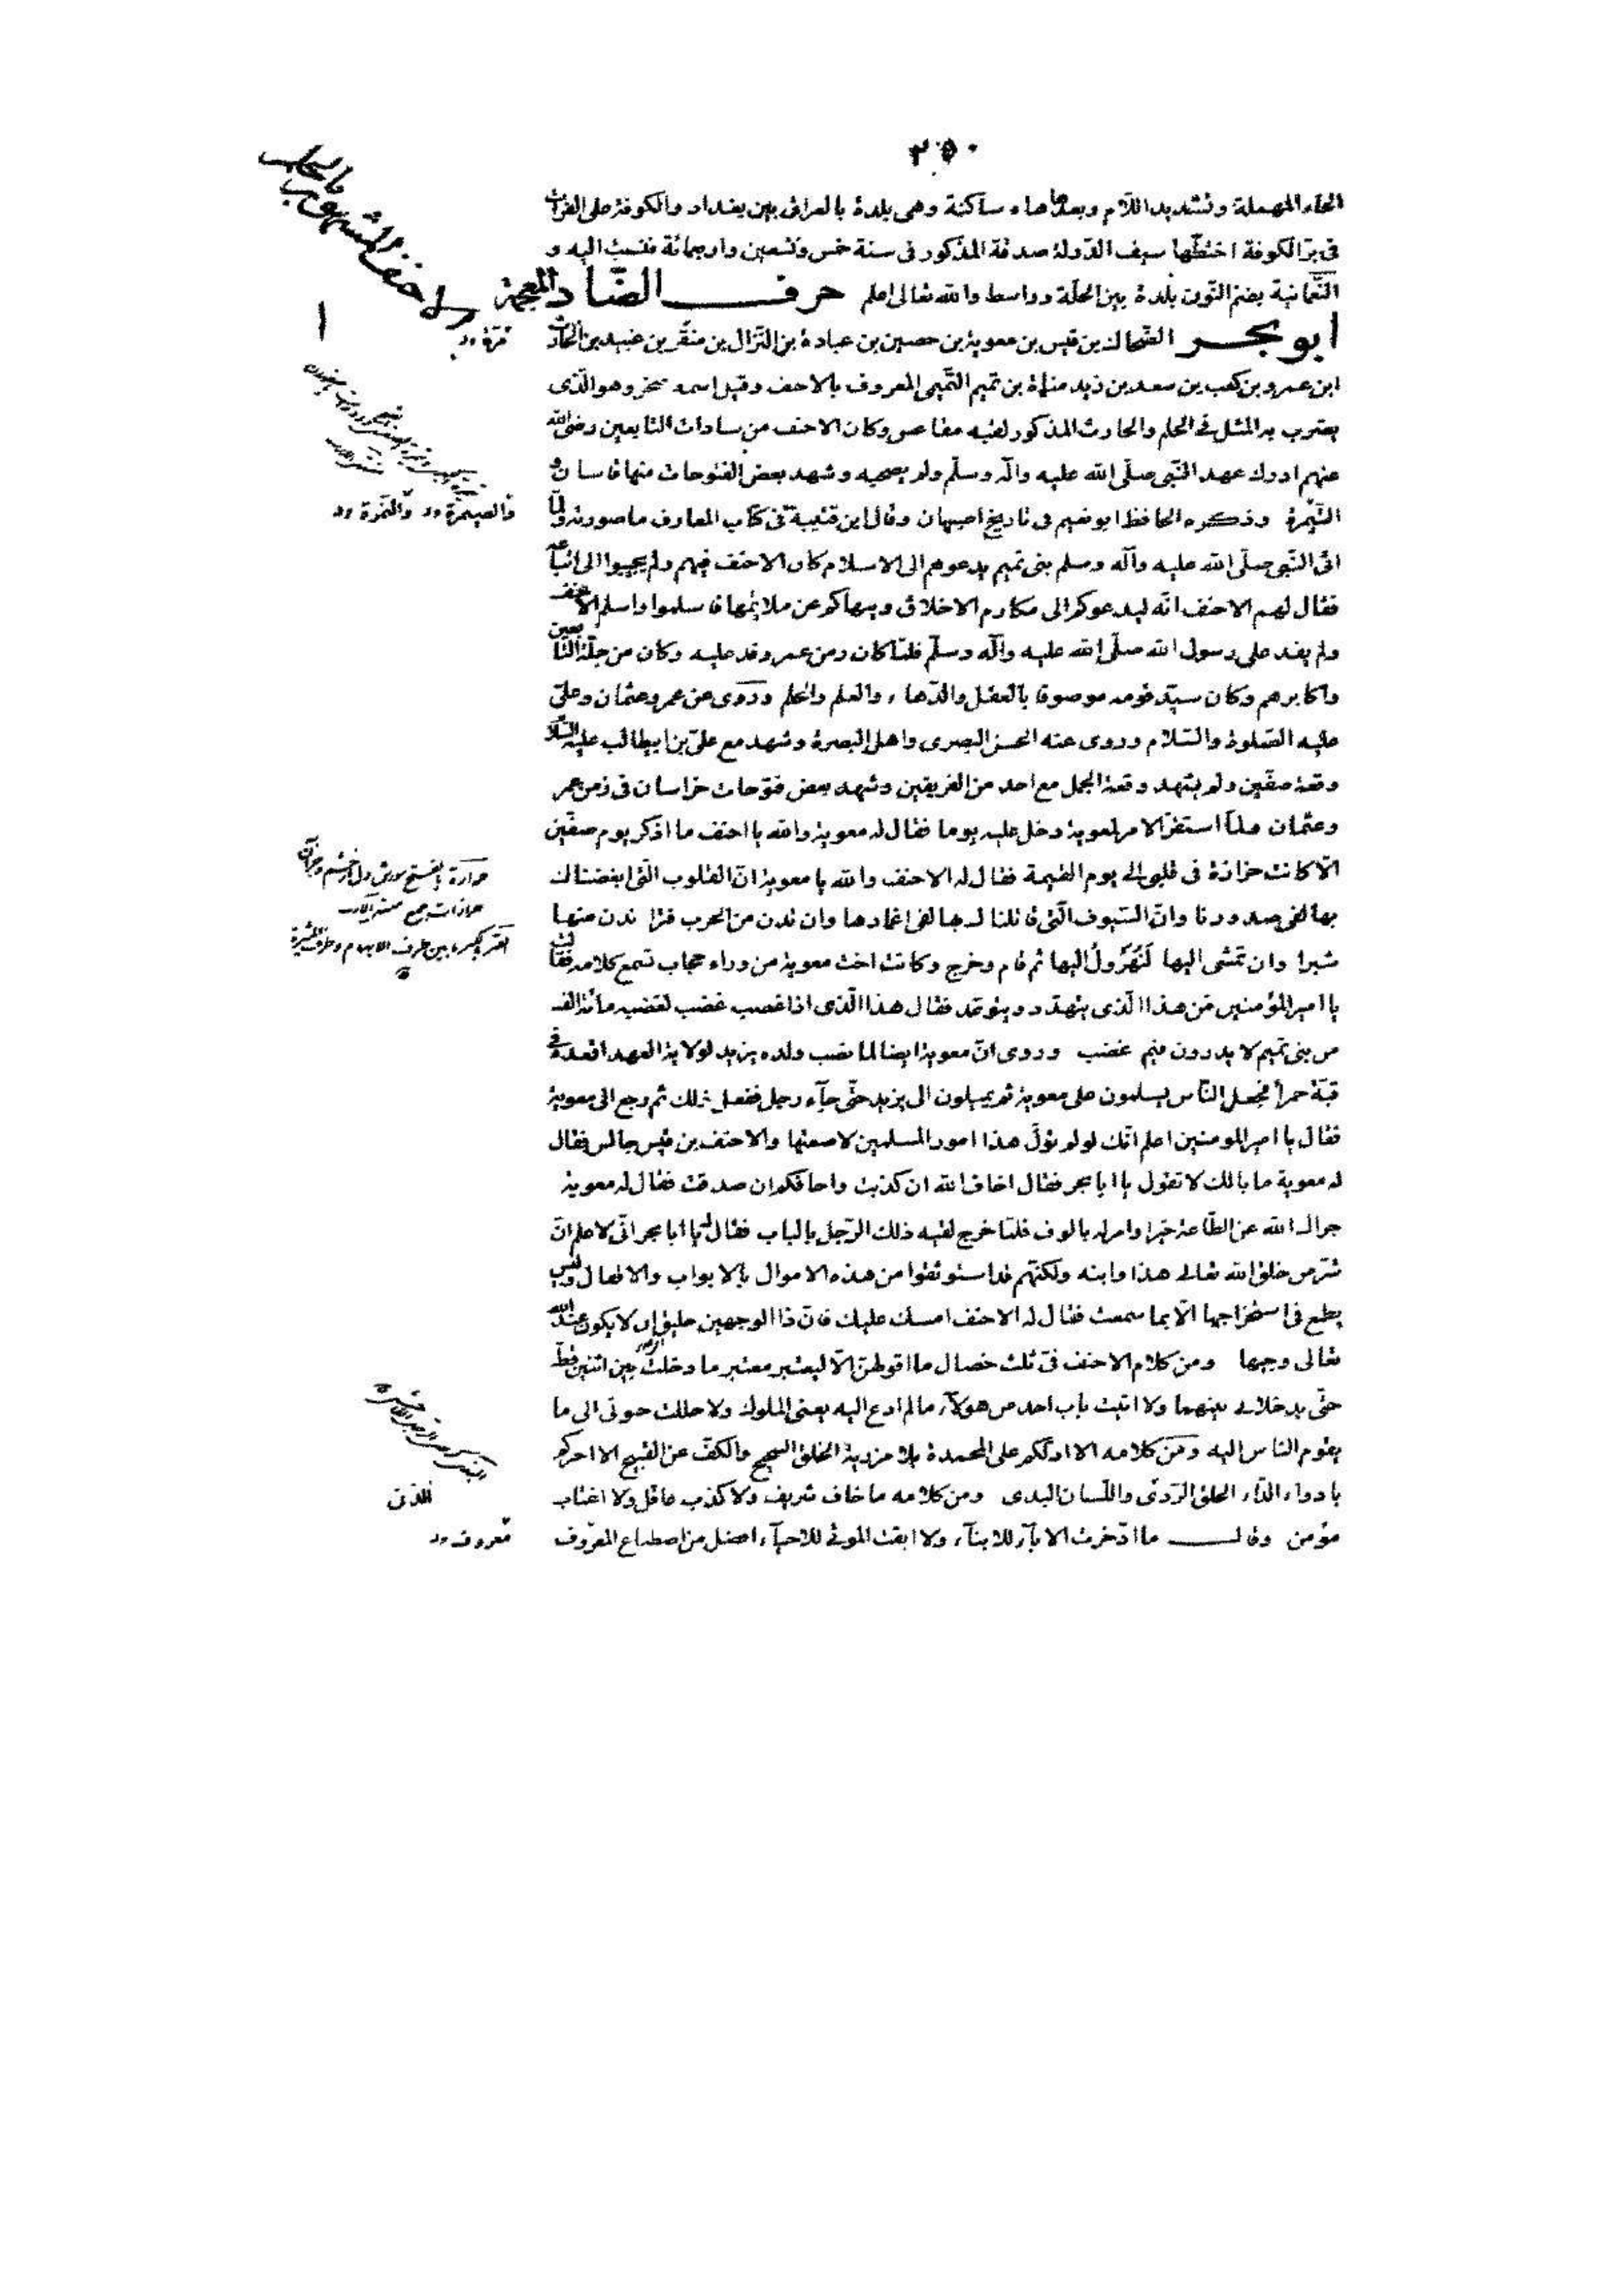 ٢٥٠
الحاء المهملة وتشديد اللّام وبعدها هاء ساكنة وهى بلدة بالعراق بين بغداد والكوفة على الفرات
فى برّ الكوفة اختطّها سيف الدّولة صدقة المذكور فى سنة خمس وتسعين واربعمائة فنسبت اليه و
النّعمانية بضم النّون بلدة بين الحلّة وواسط والله تعالى اعلم حرف الضّاد المعجمة
ابو بحر الضّحاك بن قيس بن معوية بن حصين بن عبادة بن النزّال بن منقر بن عبيد بن الحارث
ابن عمرو بن كعب بن سعد بن زيد مناة بن تميم التّميمى المعروف بالاحنف وقيل اسمه صخر وهو الّذى
يضرب به المثل فى الحلم والحارث المذكور لقبه مقاعس وكان الاحنف من سادات التابعين رضى الله
عنهم ادرك عهد النّبى صلّى الله عليه وآله وسلّم ولم يصحبه وشهد بعض الفتوحات منها قاسان و
التّيمرة وذكره الحافظ ابو نعيم فى تاريخ اصبهان وقال ابن قتيبة فى كتاب المعارف ما صورته ولمّا
اتى النّبى صلّى الله عليه وآله وسلم بنى تميم يدعوهم الى الاسلام كان الاحنف فيهم ولم يجيبوا الى اتباعه
فقال لهم الاحنف انّه ليدعوكم الى مكارم الاخلاق وينهاكم عن ملائمها فاسلموا واسلم الاحنف
ولم يفد على رسول الله صلّى الله عليه وآله وسلّم فلمّا كان زمن عمر وفد عليه وكان من جلّة التّابعين
واكابرهم وكان سيّد قومه موصوفا بالعقل والدّهاء والعلم والحلم وروى عن عمر وعثمان وعلىّ
عليه الصّلوة والسّلام وروى عنه الحسن البصرى واهل البصرة وشهد مع علىّ بن ابيطالب عليه السّلام
وقعة صفّين ولم يشهد وقعة الجمل مع احد من الفريقين وشهد بعض فتوحات خراسان فى زمن عمر
وعثمان ولمّا استقرّ الامر لمعوية دخل عليه يوما فقال له معوية والله يا احنف ما اذكر يوم صفّين
الّا كانت حزازة فى قلبى الى يوم القيمة فقال له الاحنف والله يا معوية انّ القلوب التّى ابغضناك
بها لفى صدورنا وانّ السّيوف الّتى قاتلناك بها لفى اغمادها وان تدن من الحرب فترا ندن منها
شبرا وان تمشى اليها لَنُهَرْوِلُ اليها ثم قام وخرج وكانت اخت معوية من وراء حجاب تسمع كلامه فقالت
يا امير المؤمنين من هذا الّذى يتهدّد ويتوعّد فقال هذا الّذى اذا غضب غضب لغضبه مائة الف
من بنى تميم لا يدرون فيم غضب وروى انّ معوية ايضا لما نصب ولده يزيد لولاية العهد اقعده فى
قبّة حمرآ فجعل النّاس يسلمون على معوية ثم يميلون الى يزيد حتّى جآء رجل ففعل ذلك ثم رجع الى معوية
فقال يا امير المومنين اعلم انّك لو لم تولّ هذا امور المسلمين لاضعتها والاحنف بن قيس جالس فقال
له معوية ما بالك لا تقول يا ابا بحر فقال اخاف الله ان كذبت واخافكم ان صدقت فقال له معوية
جزاك الله عن الطّاعة خيرا وامر له بالوف فلمّا خرج لقيه ذلك الرّجل بالباب فقال له يا ابا بحر انّى لاعلم انّ
شرّ من خلق الله تعالى هذا وابنه ولكنّهم قد استوثقوا من هذه الاموال بالابواب والاقفال وليس
يطمع فى استخراجها الّا بما سمعت فقال له الاحنف امسك عليك فانّ ذا الوجهين خليق ان لا يكون عند الله
تعالى وجيها ومن كلام الاحنف فىّ ثلث خصال ما اقولهنّ الّا ليعتبر معتبر ما دخلت بين اثنين قطّ
حتّى يدخلانى بينهما ولا اتيت باب احد من هولآء ما لم ادع اليه يعنى الملوك ولا حللت حبوتى الى ما
يقوم الناس اليه ومن كلامه الا ادلّكم على المحمدة بلا مرزية الخلق السجيح والكفّ عن القبيح الا اخبركم
بادواء الدّاء الخلق الرّدىّ واللّسان البذى ومن كلامه ما خان شريف ولا كذب عاقل ولا اغتاب
مؤمن وقال ما ادّخرت الابآء للابنآء ولا ابقت الموتى للاحيآء افضل من اصطناع المعروف
والاحنف المشهور
والصيمرة ود والتمرة ود
معروف ود